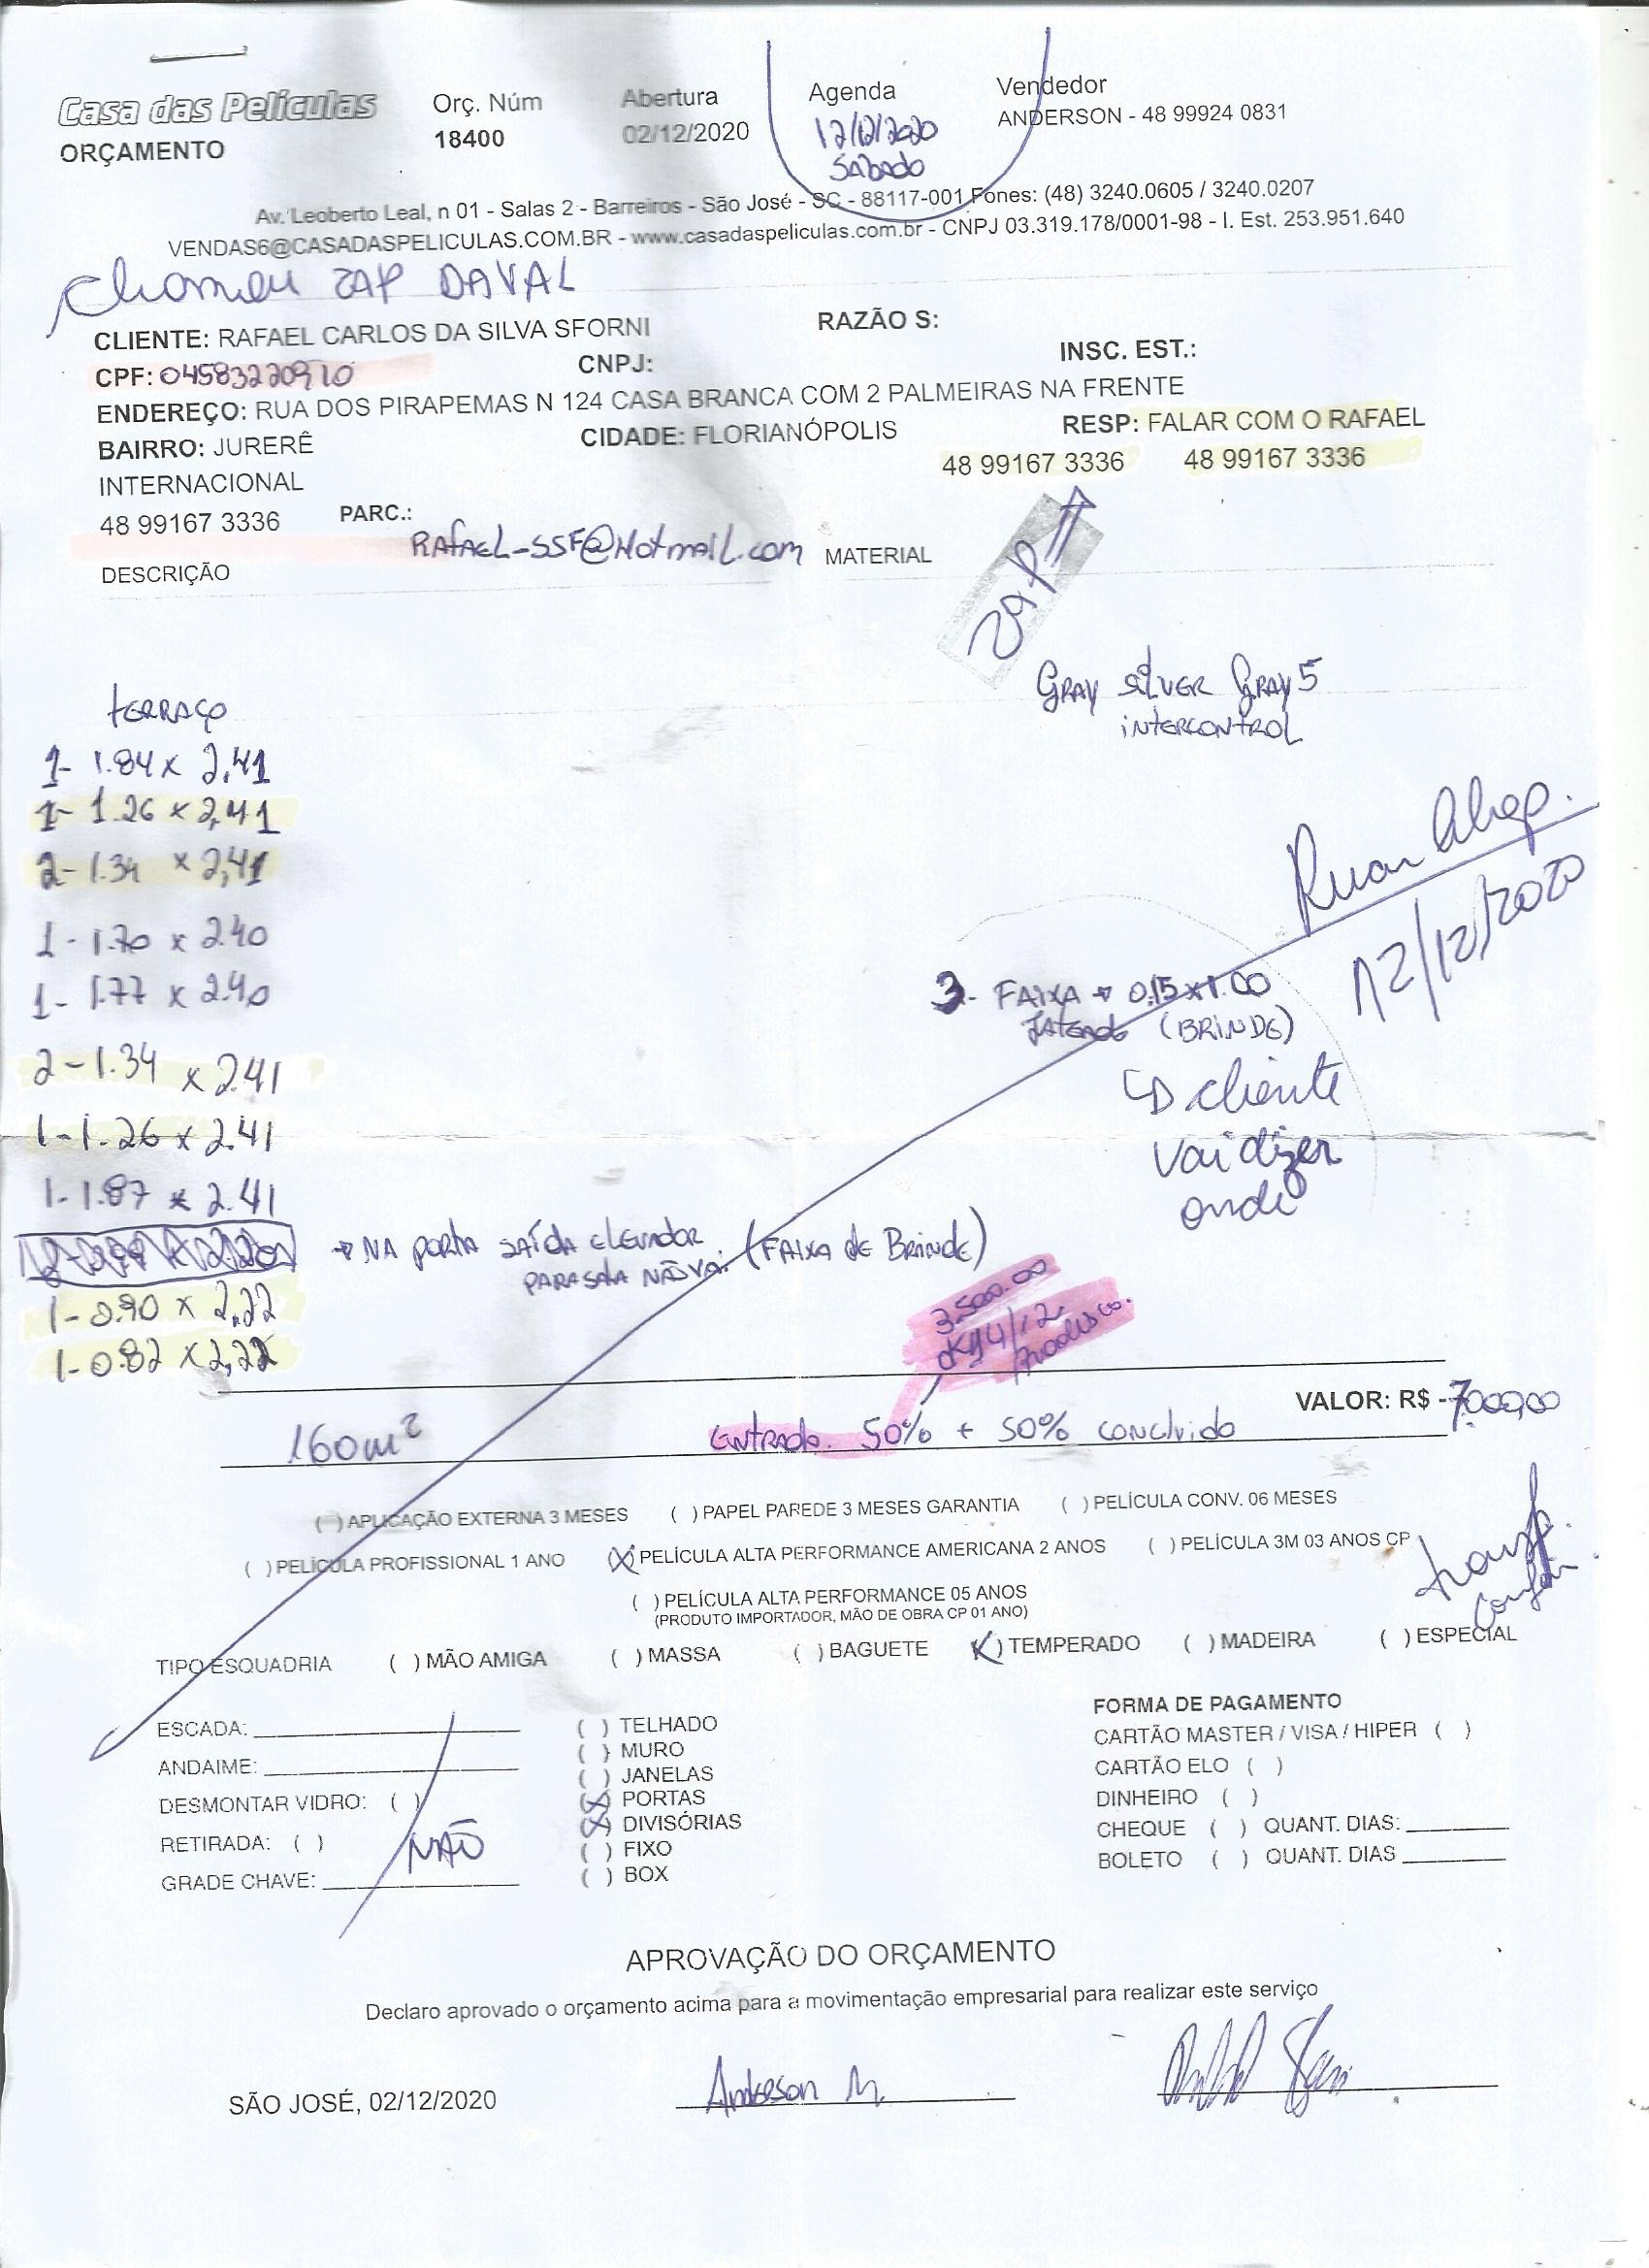 Casa das Películas
ORÇAMENTO
Orç. Núm
18400
Abertura
02/12/2020
Agenda
12/12/2020
SÁBADO
Vendedor
ANDERSON - 48 99924 0831
Av. Leoberto Leal, n 01 - Salas 2 - Barreiros - São José - SC - 88117-001 Fones: (48) 3240.0605 / 3240.0207
VENDAS6@CASADASPELICULAS.COM.BR - www.casadaspeliculas.com.br - CNPJ 03.319.178/0001-98 - I. Est. 253.951.640
ZAP DAVAL
CLIENTE: RAFAEL CARLOS DA SILVA SFORNI RAZÃO S:
CPF: 04583220910 CNPJ: INSC. EST.:
ENDEREÇO: RUA DOS PIRAPEMAS N 124 CASA BRANCA COM 2 PALMEIRAS NA FRENTE
BAIRRO: JURERÊ CIDADE: FLORIANÓPOLIS RESP: FALAR COM O RAFAEL
INTERNACIONAL 48 99167 3336 48 99167 3336
48 99167 3336 PARC.:
RAFAEL-SSF@Hotmail.com
DESCRIÇÃO MATERIAL
ZAP
GRAY SILVER GRAY 5
INTERCONTROL
TERRAÇO
1- 1.84 x 2,41
1- 1.26 x 2,41
2- 1.34 x 2,41
1- 1.70 x 2.40
1- 1.77 x 2.40
2- 1.34 x 2.41
1- 1.26 x 2.41
1- 1.87 x 2.41
Ruan
12/12/2020
3- FAIXA → 0,15 x 1.00
(BRINDE)
cliente
vai dizer
onde
→ NA PORTA SAÍDA ELEVADOR (FAIXA de BRINDE)
PARA SALA NÃO VAI.
1- 0.90 x 2,22
1- 0.82 x 2,22
3.500.00
160m²
ENTRADA. 50% + 50% CONCLUIDO
VALOR: R$ - 7.000,00
( ) APLICAÇÃO EXTERNA 3 MESES ( ) PAPEL PAREDE 3 MESES GARANTIA ( ) PELÍCULA CONV. 06 MESES
( ) PELÍCULA PROFISSIONAL 1 ANO (X) PELÍCULA ALTA PERFORMANCE AMERICANA 2 ANOS ( ) PELÍCULA 3M 03 ANOS CP
( ) PELÍCULA ALTA PERFORMANCE 05 ANOS
(PRODUTO IMPORTADOR, MÃO DE OBRA CP 01 ANO)
TIPO ESQUADRIA ( ) MÃO AMIGA ( ) MASSA ( ) BAGUETE (X) TEMPERADO ( ) MADEIRA ( ) ESPECIAL
ESCADA:
ANDAIME:
DESMONTAR VIDRO: ( )
RETIRADA: ( )
GRADE CHAVE:
NÃO
( ) TELHADO
( ) MURO
( ) JANELAS
(X) PORTAS
(X) DIVISÓRIAS
( ) FIXO
( ) BOX
FORMA DE PAGAMENTO
CARTÃO MASTER / VISA / HIPER ( )
CARTÃO ELO ( )
DINHEIRO ( )
CHEQUE ( ) QUANT. DIAS:
BOLETO ( ) QUANT. DIAS
APROVAÇÃO DO ORÇAMENTO
Declaro aprovado o orçamento acima para a movimentação empresarial para realizar este serviço
SÃO JOSÉ, 02/12/2020
Anderson M.